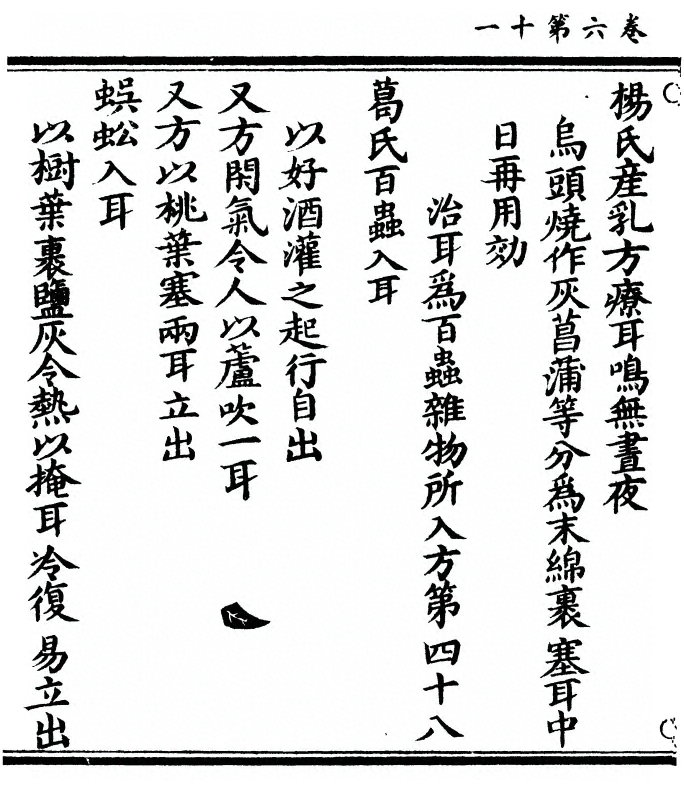 卷六第十一
楊氏産乳方療耳鳴無晝夜
烏頭燒作灰菖蒲等分爲末綿裹塞耳中
日再用効
治耳爲百蟲雜物所入方第四十八
葛氏百蟲入耳
以好酒灌之起行自出
又方閇氣令人以蘆吹一耳
又方以桃葉塞兩耳立出
蜈蚣入耳
以樹葉裹鹽灰令熱以掩耳冷復易立出